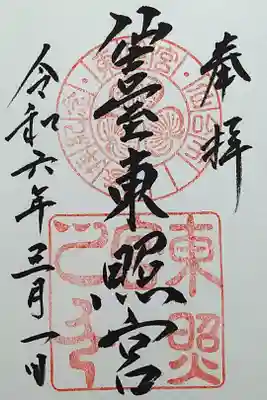 奉拝
仙臺東照宮
令和六年三月一日
東照
宮